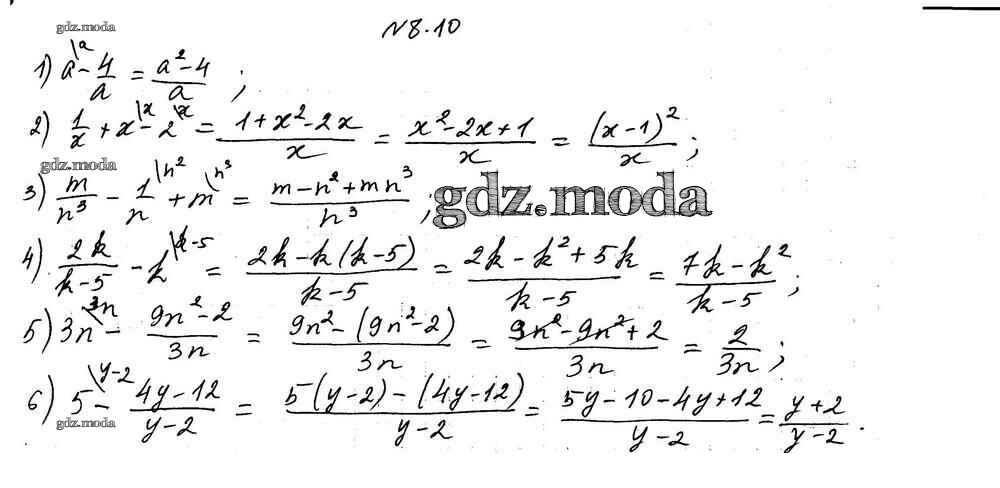 gdz.moda
N8.10
1) a\a - 4/a = (a² - 4)/a ;
2) 1/x + x\x - 2\x = (1 + x² - 2x)/x = (x² - 2x + 1)/x = (x - 1)²/x ;
gdz.moda
3) m/n³ - 1/n\n² + m\n³ = (m - n² + mn³)/n³ ;
gdz.moda
4) 2k/(k - 5) - k\k-5 = (2k - k(k - 5))/(k - 5) = (2k - k² + 5k)/(k - 5) = (7k - k²)/(k - 5) ;
5) 3n\3n - (9n² - 2)/3n = (9n² - (9n² - 2))/3n = (9n² - 9n² + 2)/3n = 2/3n ;
6) 5\y-2 - (4y - 12)/(y - 2) = (5(y - 2) - (4y - 12))/(y - 2) = (5y - 10 - 4y + 12)/(y - 2) = (y + 2)/(y - 2) .
gdz.moda